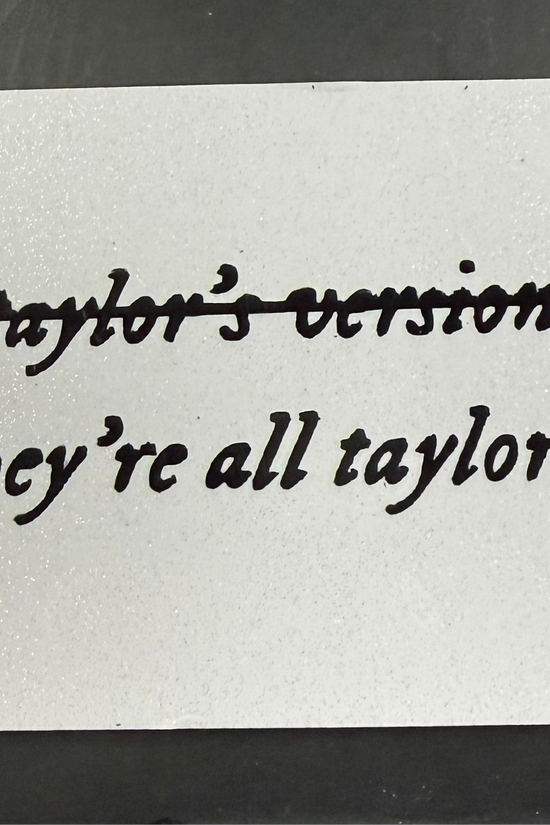 taylor's version
ey're all taylor